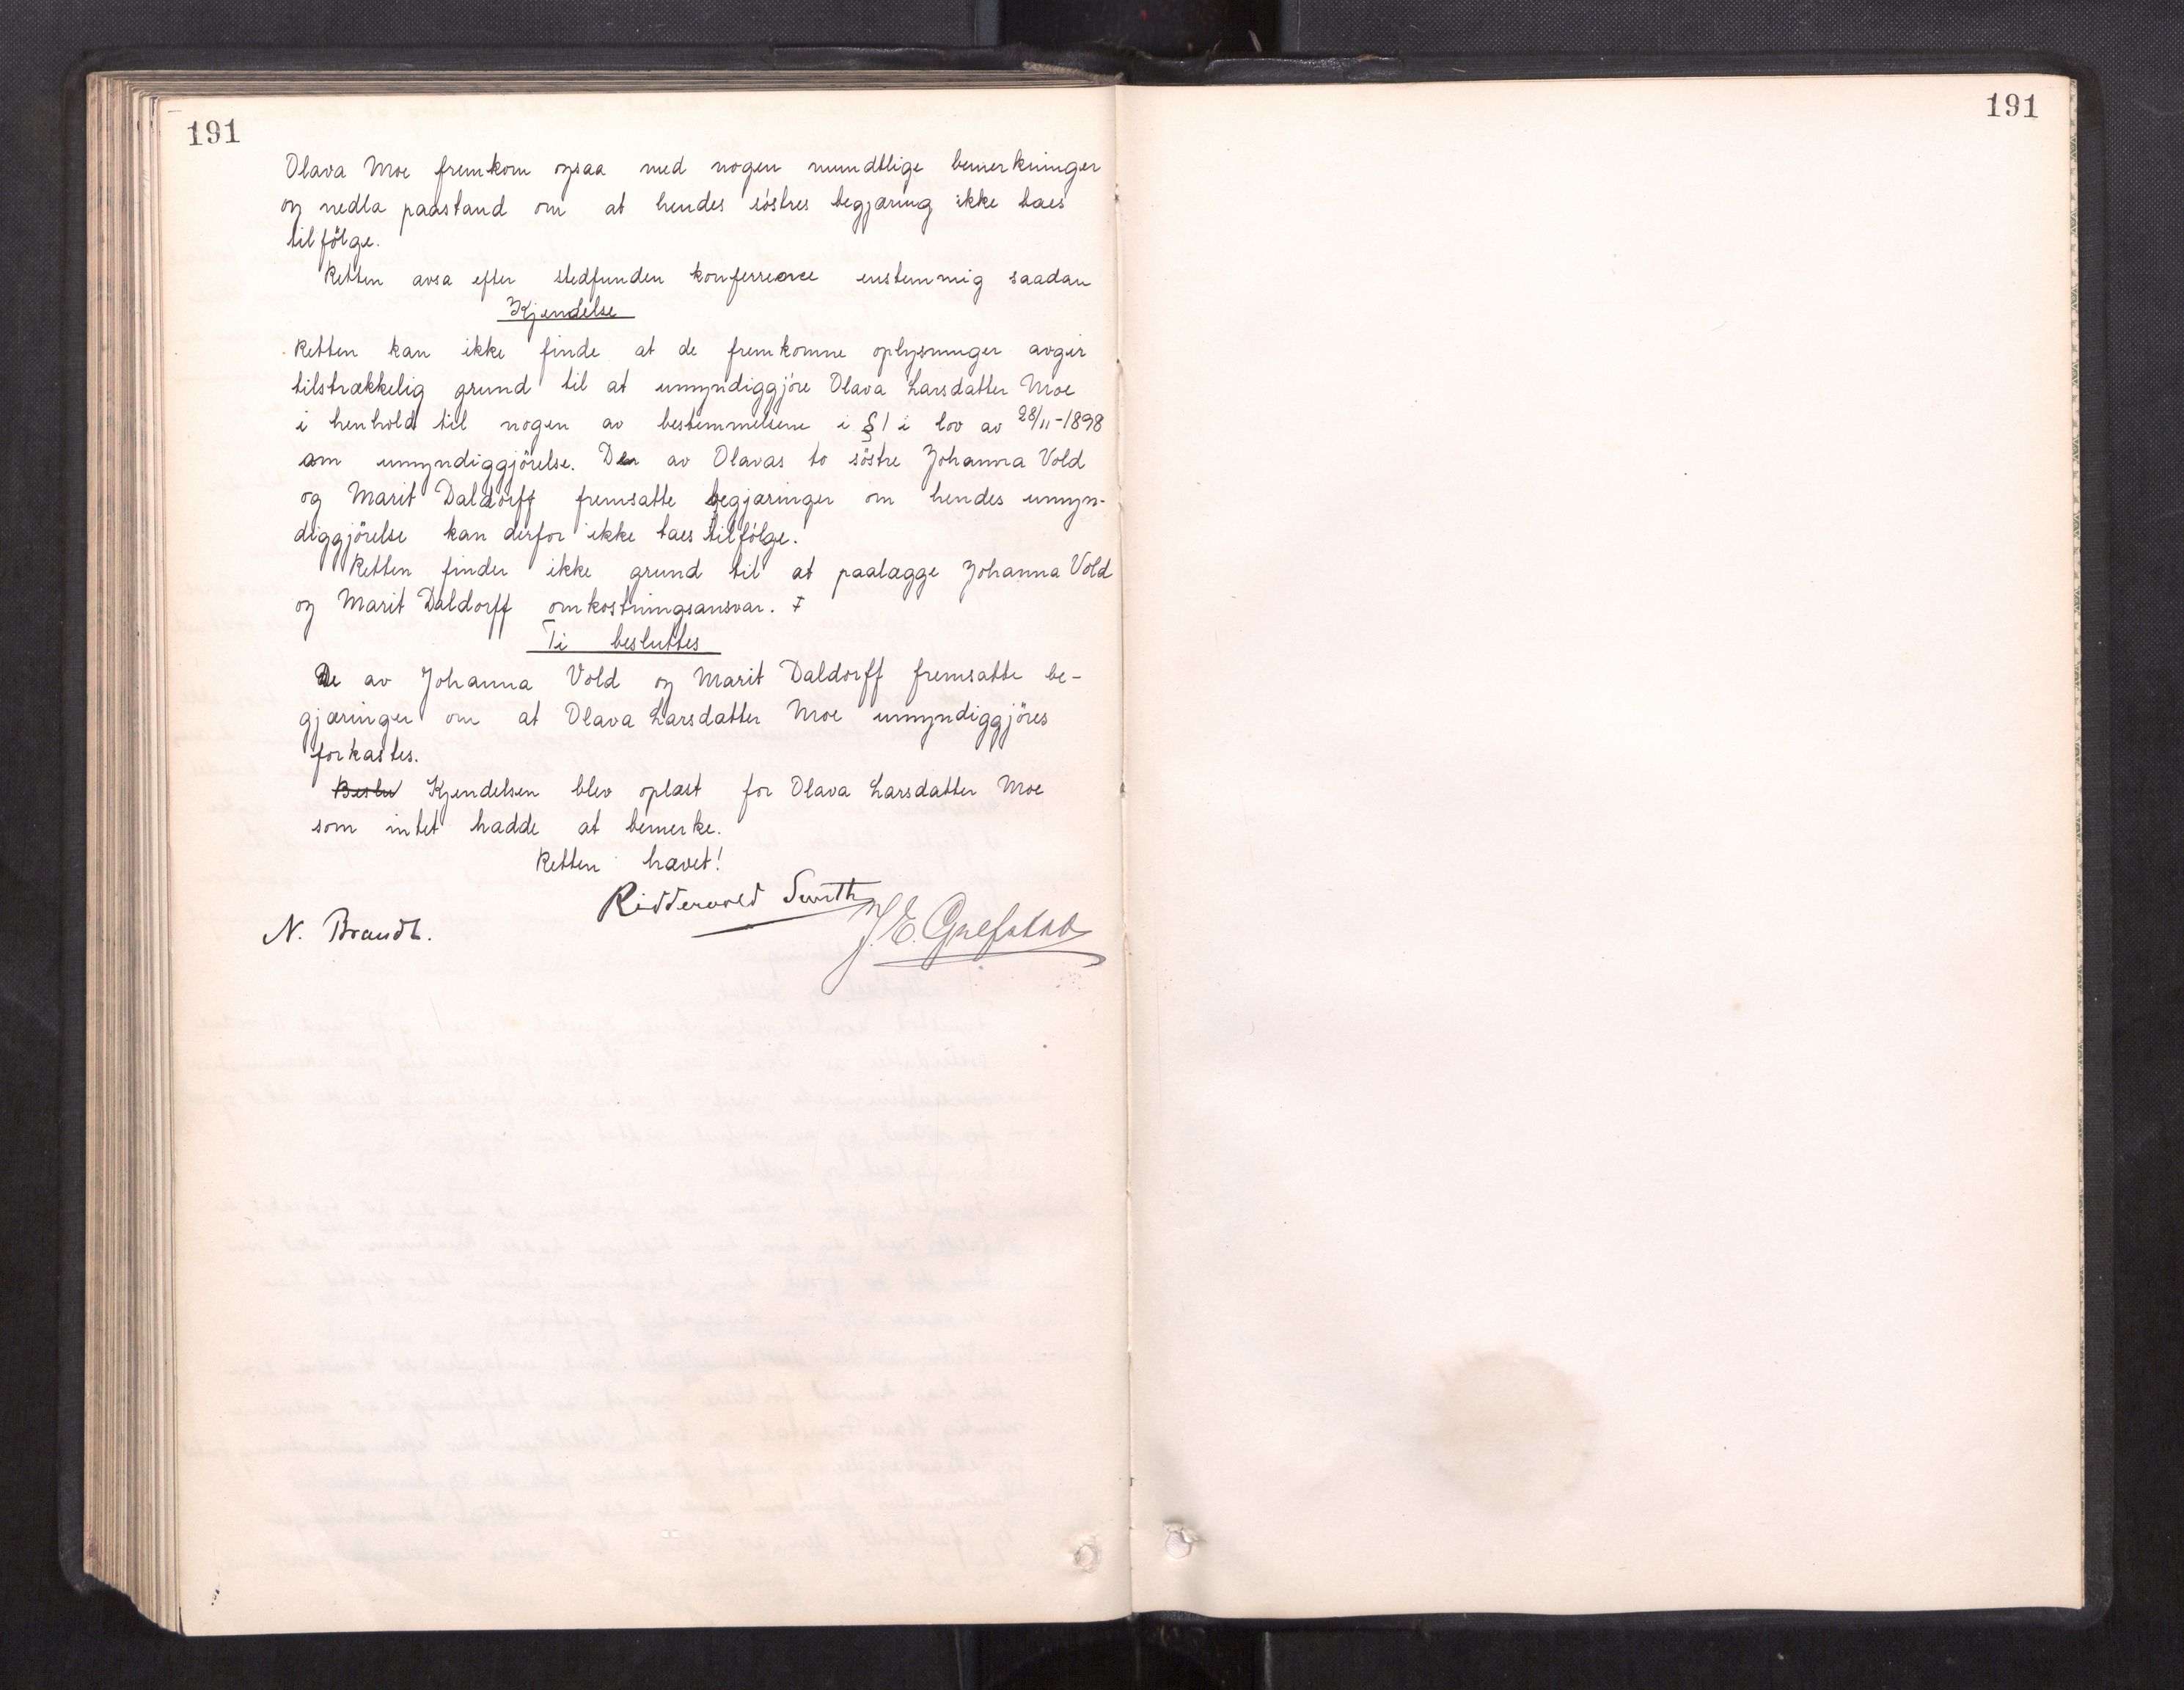 191
191
Olava Moe fremkom ogsaa med nogen mundtlige bemerkninger
og nedla paastand om at hendes söstres begjæring ikke taes
tilfölge.
Retten avsa efter stedfunden konferrence enstemmig saadan
Kjendelse
Retten kan ikke finde at de fremkomne oplysninger avgir
tilstrækkelig grund til at umyndiggjöre Olava Larsdatter Moe
i henhold til nogen av bestemmelsene i § 1 i lov av 28/11-1898
om umyndiggjörelse. De av Olavas to söstre Johanna Vold
og Marit Daldorff fremsatte begjæringer om hendes umyn-
diggjörelse kan derfor ikke taes tilfölge.
Retten finder ikke grund til at paalægge Johanna Vold
og Marit Daldorff omkostningsansvar.
Ti besluttes
De av Johanna Vold og Marit Daldorff fremsatte be-
gjæringer om at Olava Larsdatter Moe umyndiggjöres
forkastes.
Beslu Kjendelsen blev oplæst for Olava Larsdatter Moe
som intet hadde at bemerke.
Retten hævet!
Ridderwold Smith
N. Brandt. J. E. Grefstad